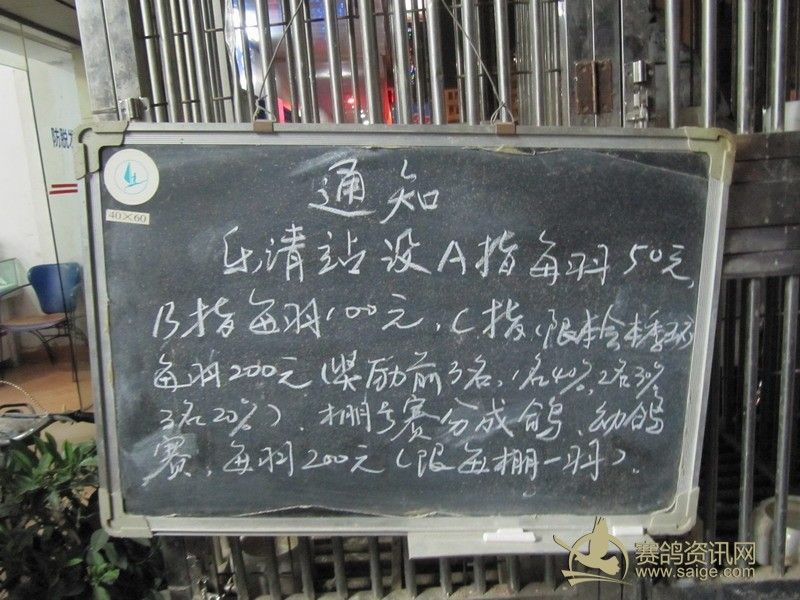 防脱发
40×60
通知
乐清站设A指每羽50元,
B指每羽100元、C指(限本会本季
每羽200元(奖励前3名,1名40%,2名30%
3名20%)、棚号赛分成鸽、幼鸽
赛,每羽200元(限每棚一羽).
赛鸽资讯网
www.saige.com